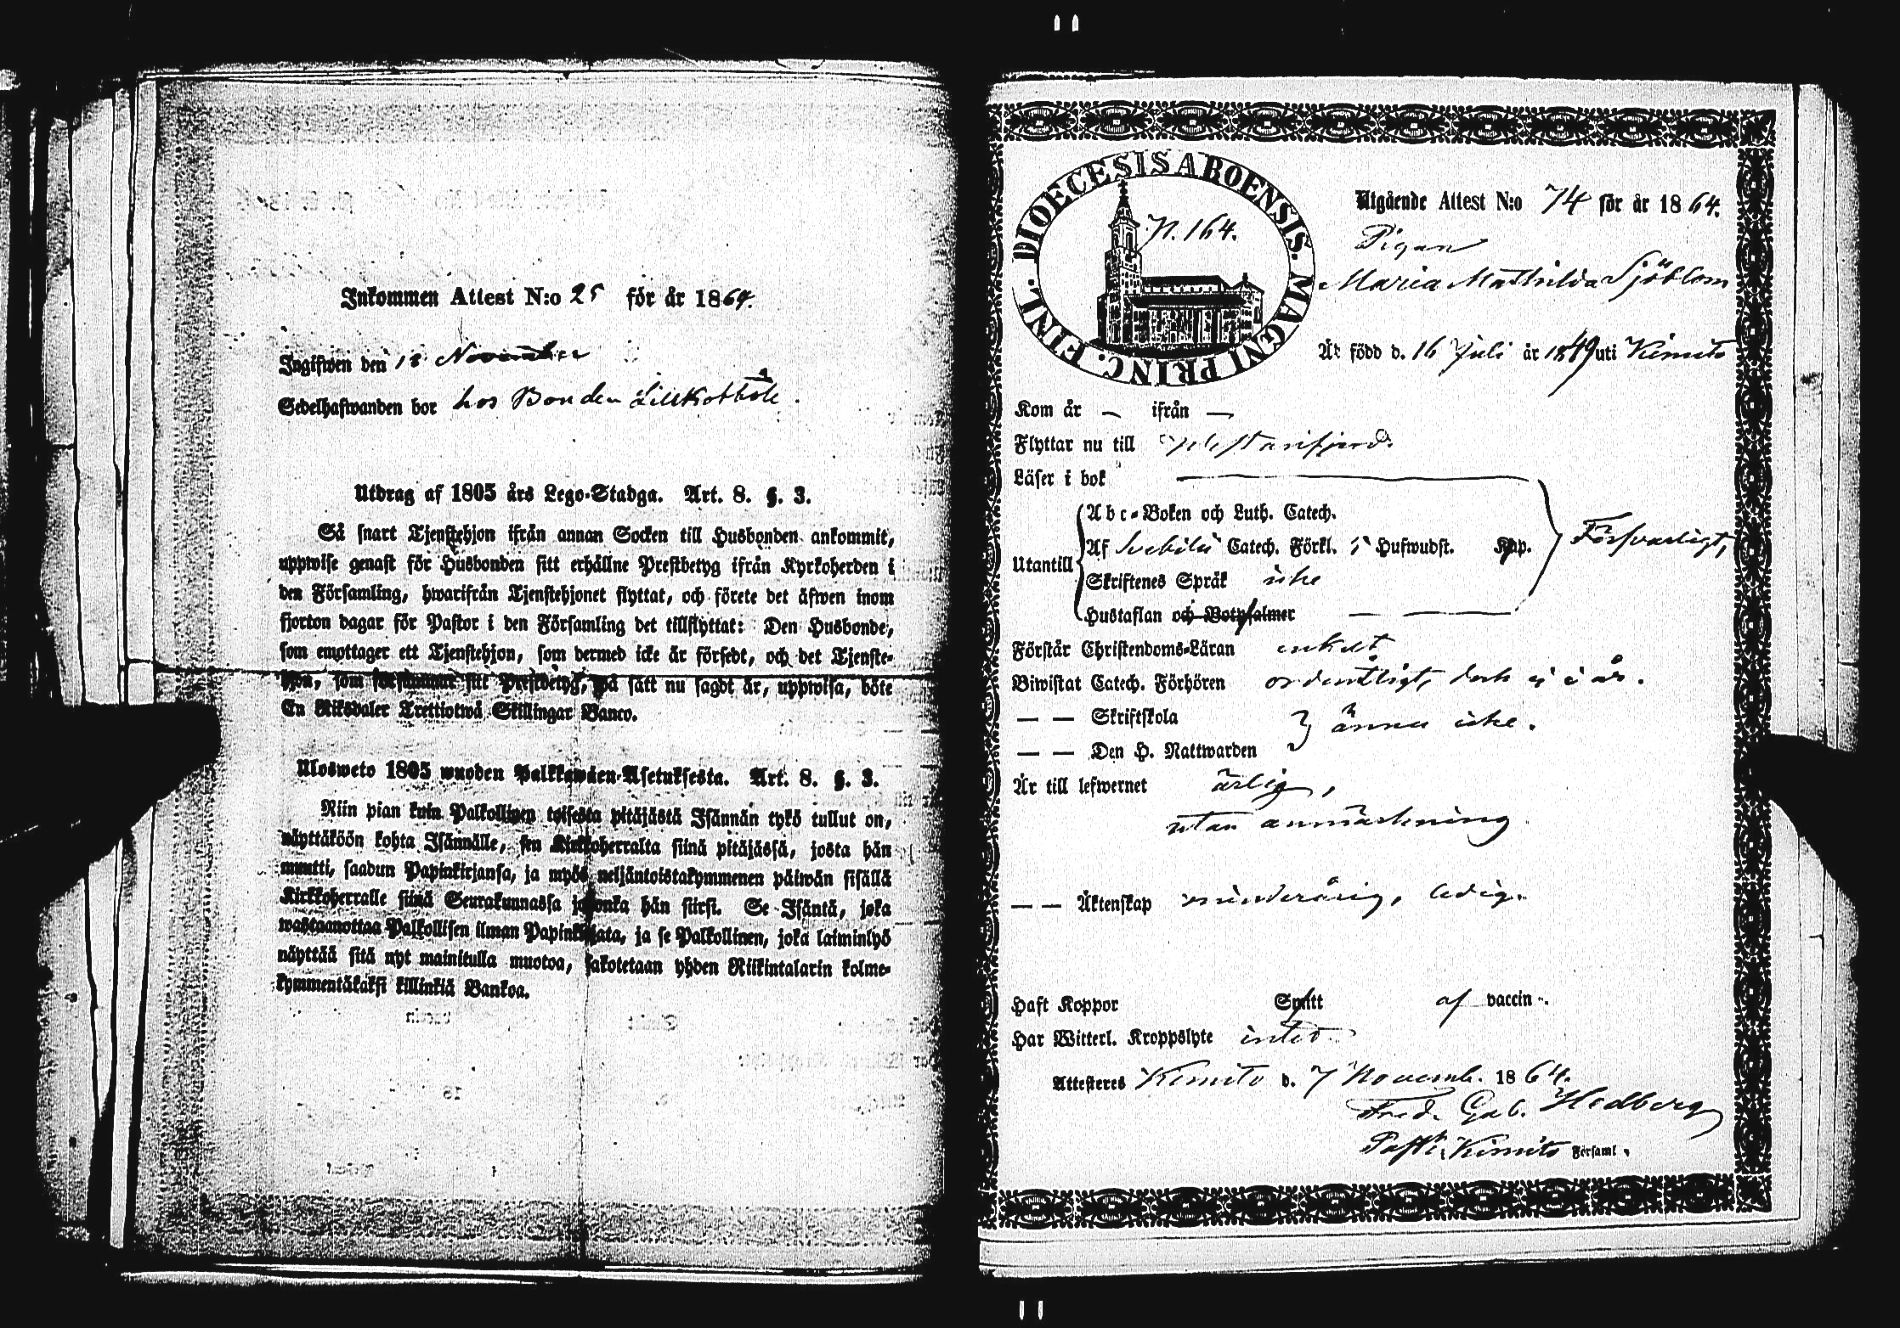 Inkommen Attest N:o 25 för år 1864.
Ingifwen den 13 November
Sedelhafwanden bor hos Bonden Lillkotböle.
Utdrag af 1805 års Lego-Stadga. Art. 8. §. 3.
Så snart Tjenstehjon ifrån annan Socken till Husbonden ankommit,
uppwise genast för Husbonden sitt erhållne Prestbetyg ifrån Kyrkoherden i
den Församling, hwarifrån Tjenstehjonet flyttat, och förete det äfwen inom
fjorton dagar för Pastor i den Församling det tillflyttat: Den Husbonde,
som emottager ett Tjenstehjon, som dermed icke är försedt, och det Tjenste-
hjon, som försummar sitt Prestbetyg, på sätt nu sagdt är, uppwisa, böte
En Riksdaler Trettiotwå Skillingar Banco.
Ulosweto 1805 wuoden Palkkawäen-Asetuksesta. Art. 8. §. 3.
Niin pian kuin Palkollinen toisesta pitäjästä Isännän tykö tullut on,
näyttäköön kohta Isännälle, sen Kirkkoherralta siinä pitäjässä, josta hän
muutti, saadun Papinkirjansa, ja myös neljäntoistakymmenen päiwän sisällä
Kirkkoherralle siinä Seurakunnassa jehonka hän siirsi. Se Isäntä, joka
wastaanottaa Palkollisen ilman Papinkirjata, ja se Palkollinen, joka laiminlyö
näyttää sitä nyt mainitulla muotoa, sakotetaan yhden Riikintalarin kolme-
kymmentäkaksi killinkiä Bankoa.
DIOECESIS ABOENSIS. MAGNI PRINC. FINL.
N. 164.
Utgående Attest N:o 74 för år 1864.
Pigan
Maria Mathilda Sjöblom
Är född d. 16 Juli år 1849 uti Kimito
Kom år — ifrån —
Flyttar nu till Westanfjerd.
Läser i bok
Abc-Boken och Luth. Catech.
Utantill Af Svebilii Catech. Förkl. Hufwudst. Kap. Försvarligt,
Skriftenes Språk icke
Hustaflan och Botpsalmer
Förstår Christendoms-Läran enkelt
Biwistat Catech. Förhören ordentligt, dock ej i år.
— — Skriftskola
ännu icke.
— — Den H. Nattwarden
Är till lefwernet ärlig,
utan anmärkning
— — Äktenskap minderårig, ledig.
Haft Koppor Smitt af vaccin.
Har Witterl. Kroppslyte intet
Attesteres Kimito d. 7 Novemb. 1864.
Fred. Gab. Hedberg
Past. i Kimito Församl.